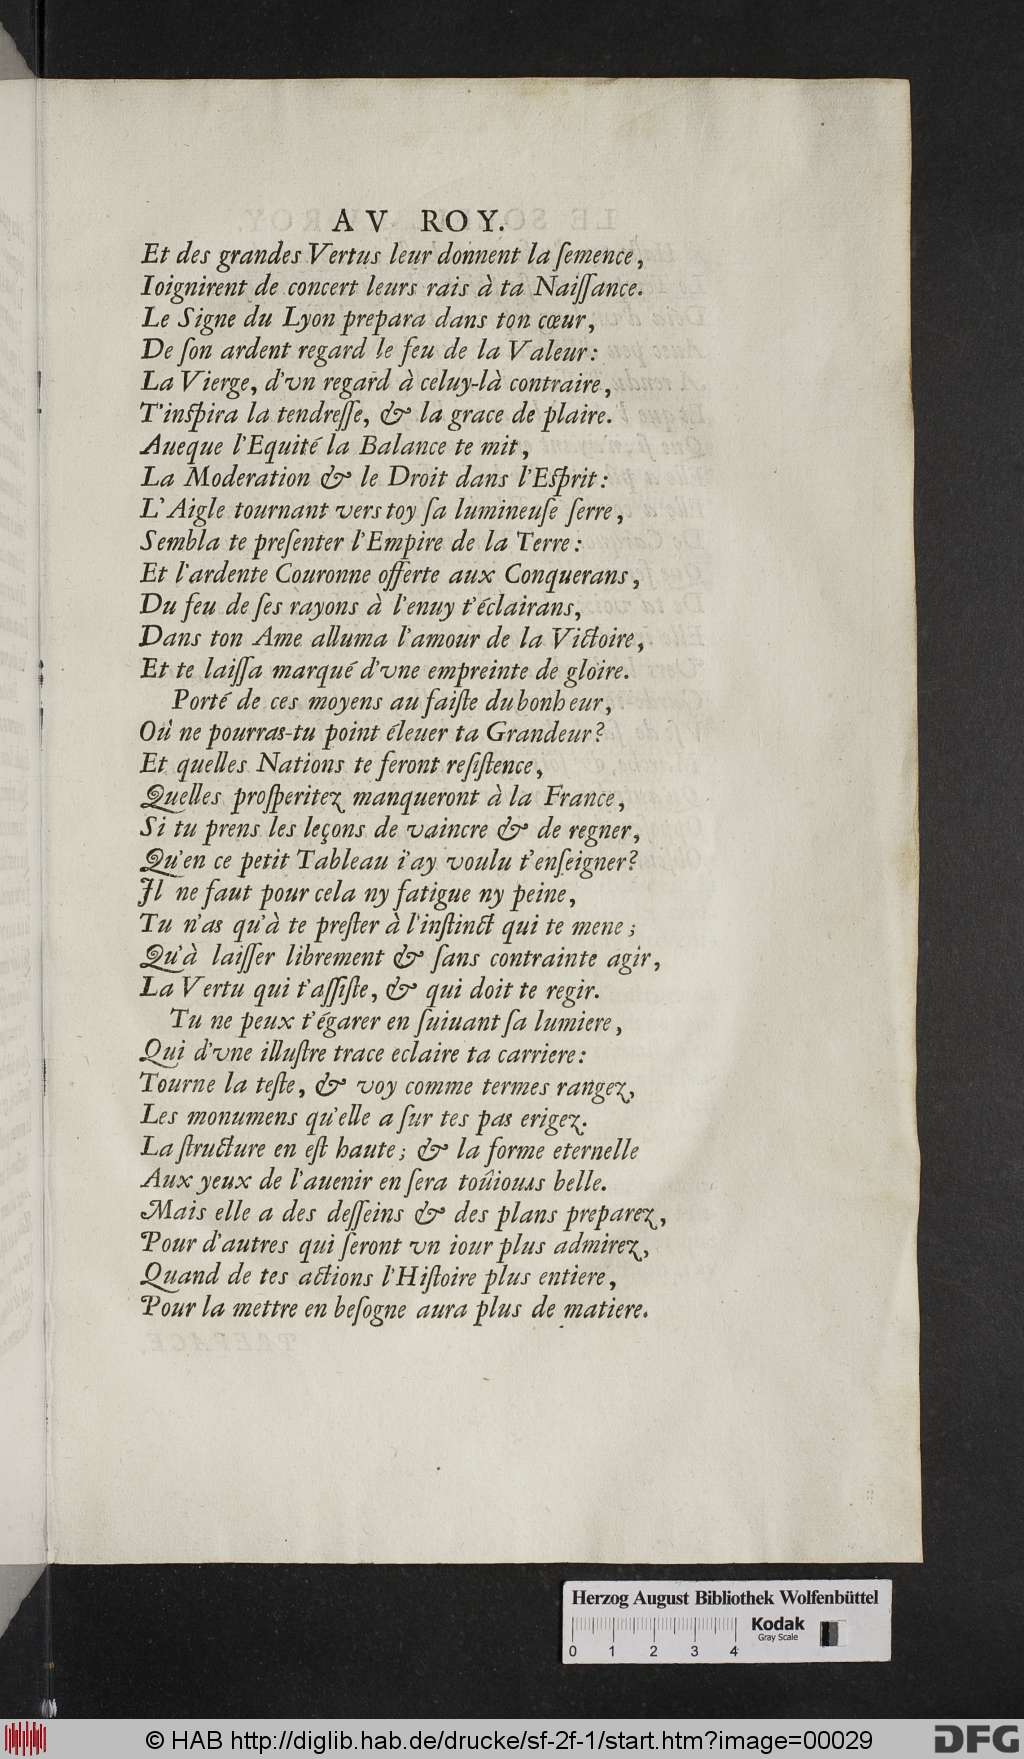 AV ROY.
Et des grandes Vertus leur donnent la ſemence,
Ioignirent de concert leurs rais à ta Naiſſance.
Le Signe du Lyon prepara dans ton cœur,
De ſon ardent regard le feu de la Valeur:
La Vierge, d'vn regard à celuy-là contraire,
T'inſpira la tendreſſe, & la grace de plaire.
Aueque l'Equité la Balance te mit,
La Moderation & le Droit dans l'Eſprit:
L'Aigle tournant vers toy ſa lumineuſe ſerre,
Sembla te preſenter l'Empire de la Terre:
Et l'ardente Couronne offerte aux Conquerans,
Du feu de ſes rayons à l'enuy t'éclairans,
Dans ton Ame alluma l'amour de la Victoire,
Et te laiſſa marqué d'vne empreinte de gloire.
Porté de ces moyens au faiſte du bonheur,
Où ne pourras-tu point éleuer ta Grandeur?
Et quelles Nations te feront reſiſtence,
Quelles proſperitez manqueront à la France,
Si tu prens les leçons de vaincre & de regner,
Qu'en ce petit Tableau i'ay voulu t'enſeigner?
Il ne faut pour cela ny fatigue ny peine,
Tu n'as qu'à te preſter à l'inſtinct qui te mene;
Qu'à laiſſer librement & ſans contrainte agir,
La Vertu qui t'aſſiſte, & qui doit te regir.
Tu ne peux t'égarer en ſuiuant ſa lumiere,
Qui d'vne illuſtre trace eclaire ta carriere:
Tourne la teſte, & voy comme termes rangez,
Les monumens qu'elle a ſur tes pas erigez.
La ſtructure en eſt haute; & la forme eternelle
Aux yeux de l'auenir en ſera toûiours belle.
Mais elle a des deſſeins & des plans preparez,
Pour d'autres qui ſeront vn iour plus admirez,
Quand de tes actions l'Hiſtoire plus entiere,
Pour la mettre en beſogne aura plus de matiere.
Herzog August Bibliothek Wolfenbüttel
Kodak
Gray Scale
0 1 2 3 4
© HAB http://diglib.hab.de/drucke/sf-2f-1/start.htm?image=00029
DFG